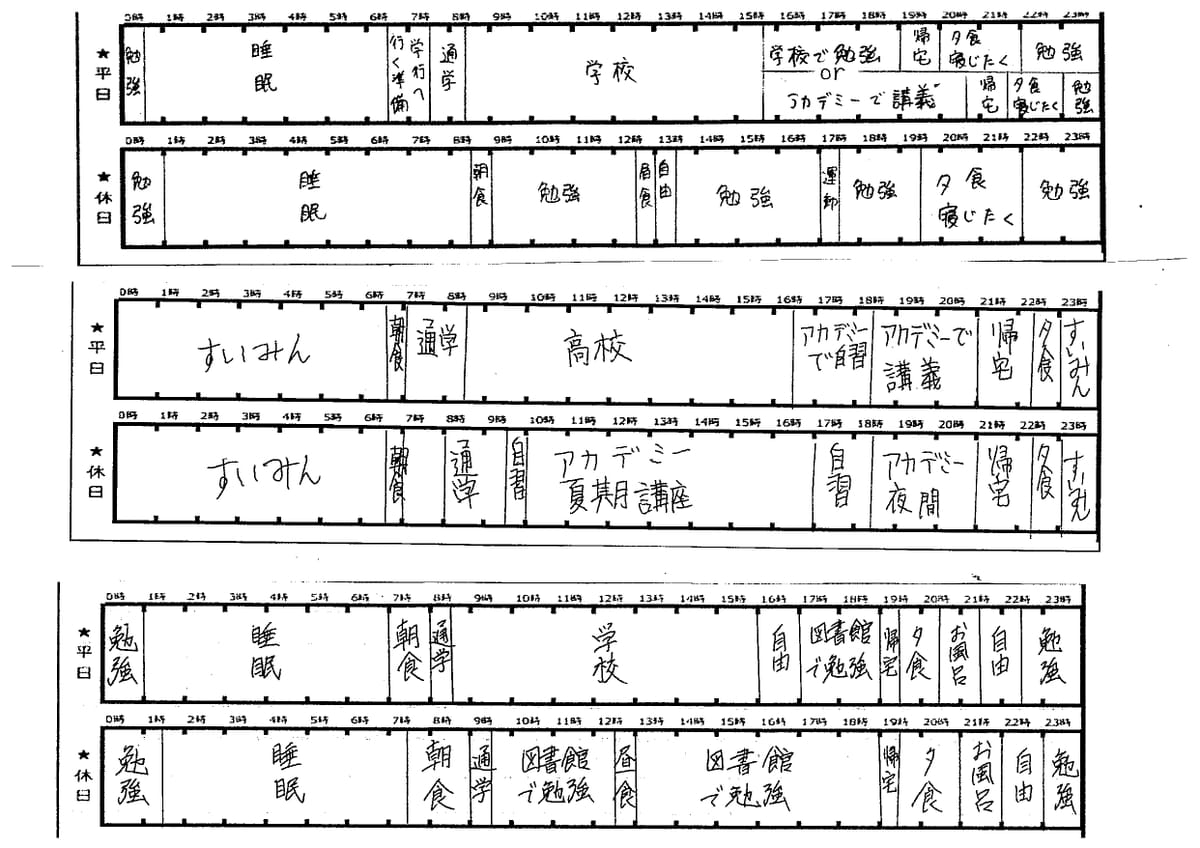 0時 1時 2時 3時 4時 5時 6時 7時 8時 9時 10時 11時 12時 13時 14時 15時 16時 17時 18時 19時 20時 21時 22時 23時
★平日
勉強
睡眠
学校へ行く準備
通学
学校
学校で勉強
帰宅
夕食 寝じたく
勉強
or
アカデミーで講義
帰宅
夕食 寝じたく
勉強
0時 1時 2時 3時 4時 5時 6時 7時 8時 9時 10時 11時 12時 13時 14時 15時 16時 17時 18時 19時 20時 21時 22時 23時
★休日
勉強
睡眠
朝食
勉強
昼食
自由
勉強
運動
勉強
夕食 寝じたく
勉強
0時 1時 2時 3時 4時 5時 6時 7時 8時 9時 10時 11時 12時 13時 14時 15時 16時 17時 18時 19時 20時 21時 22時 23時
★平日
すいみん
朝食
通学
高校
アカデミーで自習
アカデミーで講義
帰宅
夕食
すいみん
0時 1時 2時 3時 4時 5時 6時 7時 8時 9時 10時 11時 12時 13時 14時 15時 16時 17時 18時 19時 20時 21時 22時 23時
★休日
すいみん
朝食
通学
自習
アカデミー
夏期講座
自習
アカデミー
夜間
帰宅
夕食
すいみん
0時 1時 2時 3時 4時 5時 6時 7時 8時 9時 10時 11時 12時 13時 14時 15時 16時 17時 18時 19時 20時 21時 22時 23時
★平日
勉強
睡眠
朝食
通学
学校
自由
図書館で勉強
帰宅
夕食
お風呂
自由
勉強
0時 1時 2時 3時 4時 5時 6時 7時 8時 9時 10時 11時 12時 13時 14時 15時 16時 17時 18時 19時 20時 21時 22時 23時
★休日
勉強
睡眠
朝食
通学
図書館で勉強
昼食
図書館で勉強
帰宅
夕食
お風呂
自由
勉強